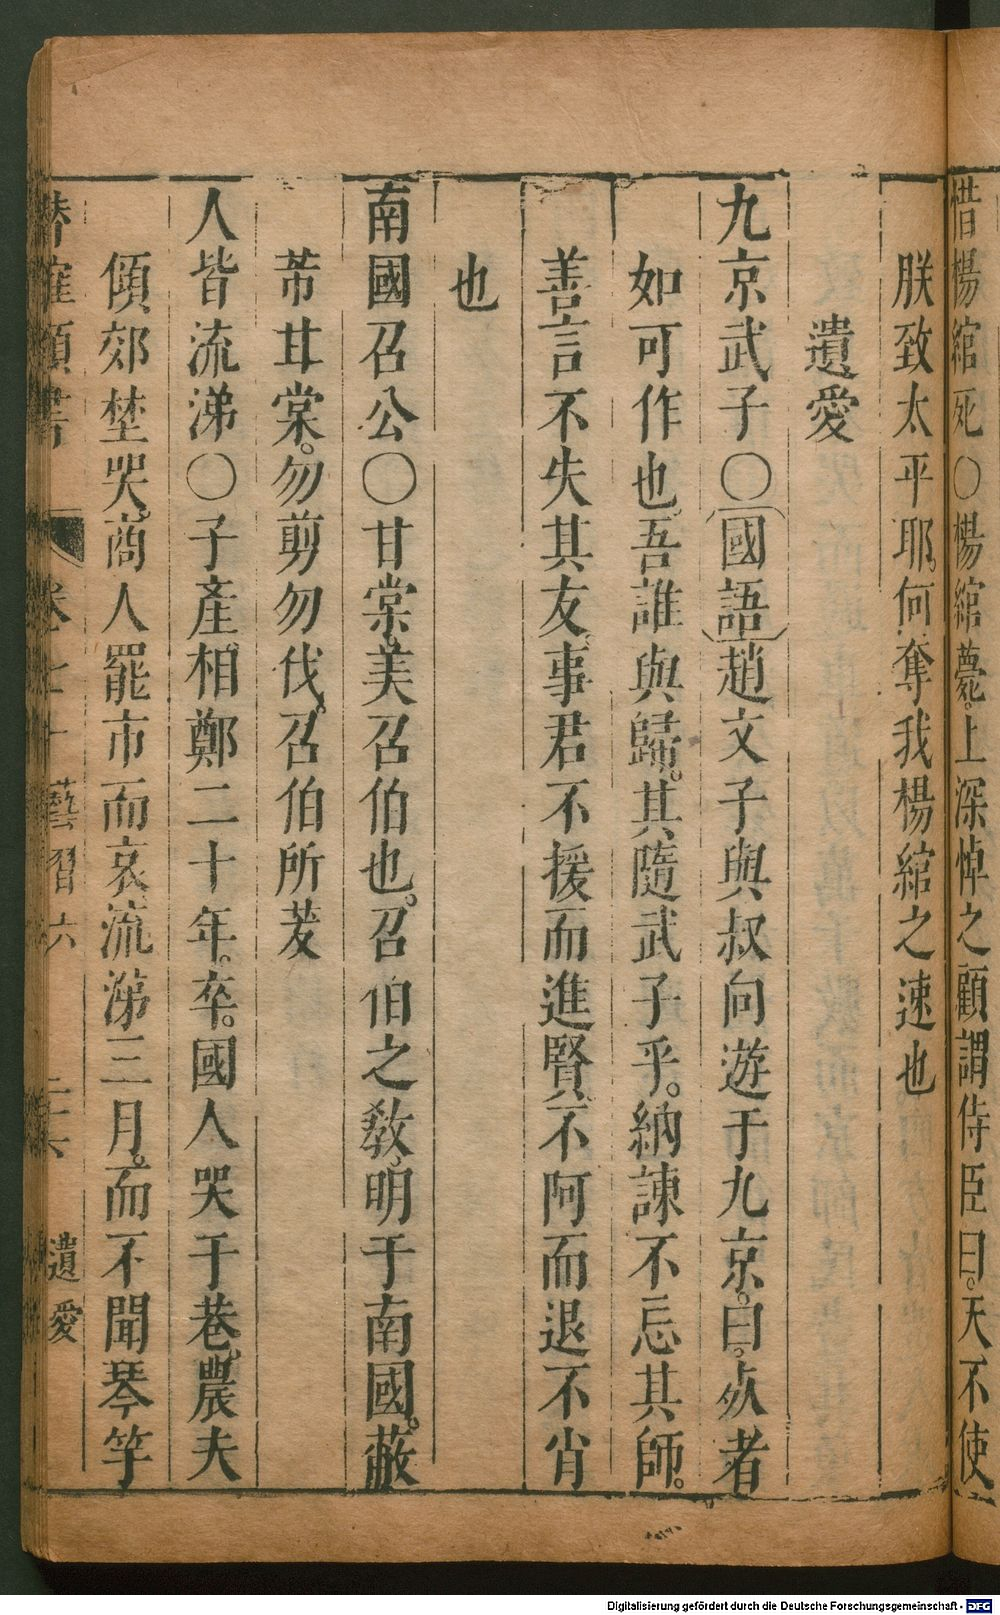 惜楊綰死○楊綰薨。上深悼之顧謂侍臣曰。天不使
朕致太平耶。何奪我楊綰之速也
遺愛
九京武子○國語趙文子與叔向遊于九京。曰。㱔者
如可作也。吾誰與歸。其隨武子乎。納諫不忘其師。
善言不失其友。事君不援而進賢。不阿而退不肖
也
南國召公○甘棠。美召伯也。召伯之敎。明于南國。蔽
芾甘棠。勿剪勿伐。召伯所茇
人皆流涕○子產相鄭二十年。卒。國人哭于巷。農夫
傾郊埜哭。商人罷市而哀。流涕三月。而不聞琴竽
卷七十 藝習六 二六 遺愛
Digitalisierung gefördert durch die Deutsche Forschungsgemeinschaft - DFG